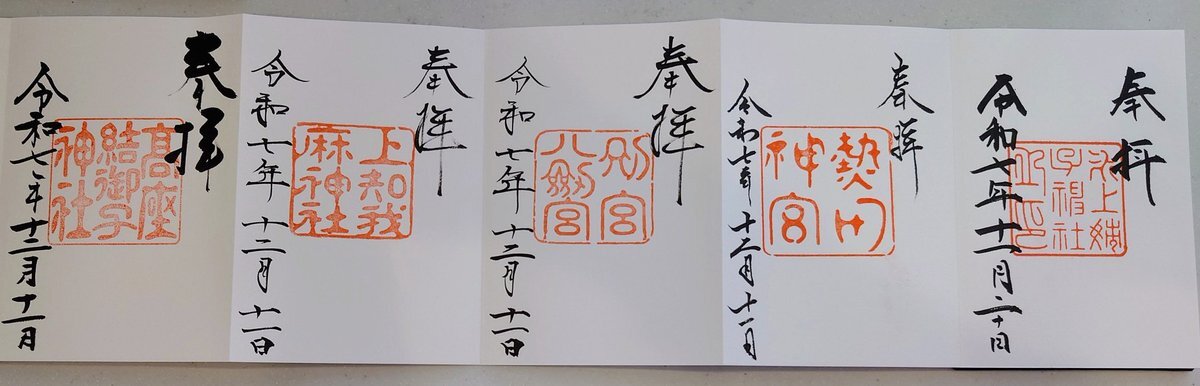 奉拝
氷上姉
子神社
令和七年十一月二十日
奉拝
熱田
神宮
令和七年十二月十一日
奉拝
別宮
八劔宮
令和七年十二月十一日
奉拝
上知我
麻神社
令和七年十二月十一日
奉拝
髙座
結御子
神社
令和七年十二月十一日